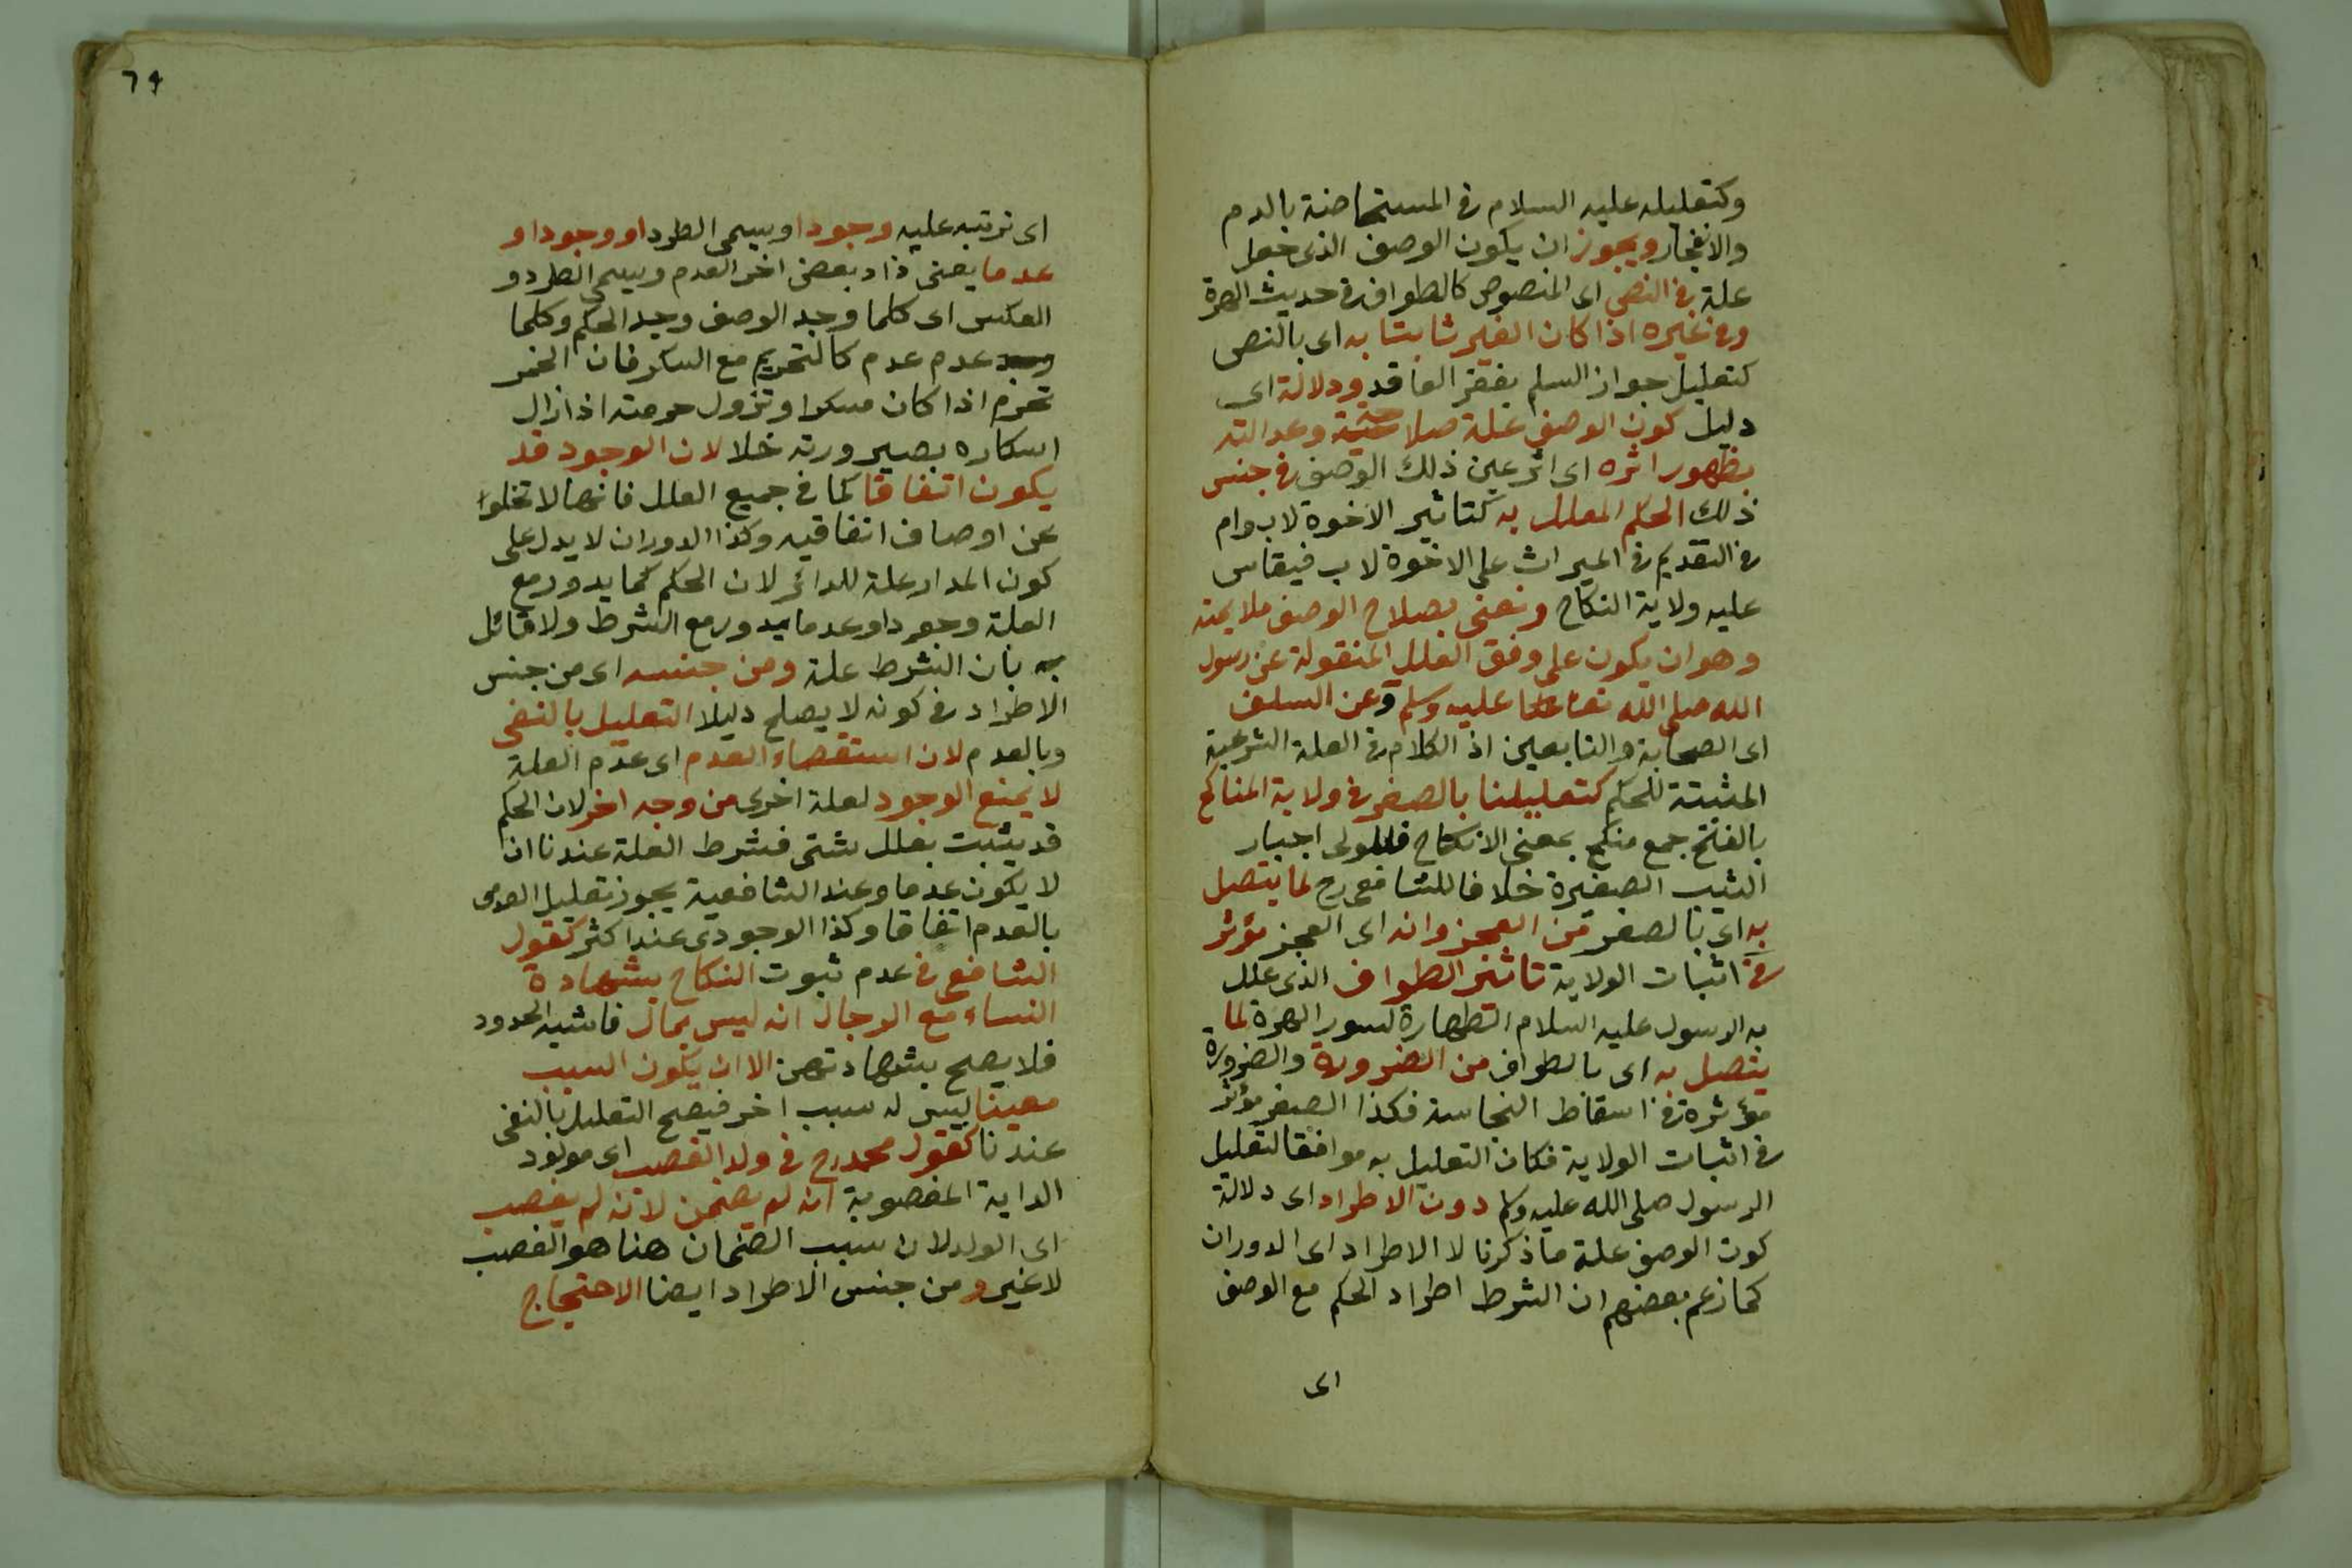 وكتعليله عليه السلام في المستحاضة بالدم
والانفجار ويجوز ان يكون الوصف الذى جعل
علة في النص اى المنصوص كالطواف في حديث الهرة
وفي غيره اذا كان الغير ثابتا به اى بالنص
كتعليل جواز السلم بفقر العاقد ودلالة اى
دليل كون الوصف علة صلاحيته وعدالته
بظهور اثره اى اثر عين ذلك الوصف في جنس
ذلك الحكم المعلل به كتاثير الاخوة لاب وام
في التقديم في الميراث على الاخوة لاب فيقاس
عليه ولاية النكاح ونعنى بصلاح الوصف ملايمته
وهو ان يكون على وفق العلل المنقولة عن رسول
الله صلى الله تعا عليه وسلم وعن السلف
اى الصحابة والتابعين اذ الكلام في العلة الشرعية
المثبتة للحكم كتعليلنا بالصغر في ولاية المناكح
بالفتح جمع منكح بمعنى الانكاح فللولى اجبار
الثيب الصغيرة خلافا للشافعى رح لما يتصل
به اى بالصغر من العجز وانه اى العجز مؤثر
في اثبات الولاية تاثير الطواف الذى علل
به الرسول عليه السلام الطهارة لسور الهرة لما
يتصل به اى بالطواف من الضرورة والضرورة
مؤثرة في اسقاط النجاسة فكذا الصغر مؤثر
في اثبات الولاية فكان التعليل به موافقا لتعليل
الرسول صلى الله عليه وسلم دون الاطراد اى دلالة
كون الوصف علة ما ذكرنا لا الاطراد اى الدوران
كما زعم بعضهم ان الشرط اطراد الحكم مع الوصف
اى
٦٩
اى ترتبه عليه وجودا ويسمى الطرد او وجودا و
عدما يعنى زاد بعض اخر العدم ويسمى الطرد و
العكس اى كلما وجد الوصف وجد الحكم وكلما
عدم عدم كالتحريم مع السكر فان الخمر
تحرم اذا كان مسكرا وتزول حرمته اذا زال
اسكاره بصيرورته خلا لان الوجود قد
يكون اتفاقا كما في جميع العلل فانها لا تخلوا
عن اوصاف اتفاقيه وكذا الدوران لا يدل على
كون المدار علة للدائر لان الحكم كما يدور مع
العلة وجودا وعدما يدور مع الشرط ولا قائل
به بان الشرط علة ومن جنسه اى من جنس
الاطراد في كونه لا يصلح دليلا التعليل بالنفى
وبالعدم لان استقصاء العدم اى عدم العلة
لا يمنع الوجود لعلة اخرى من وجه اخر لان الحكم
قد يثبت بعلل شتى فشرط العلة عندنا ان
لا يكون عدما وعند الشافعية يجوز تعليل العدمى
بالعدم اتفاقا وكذا الوجودى عند اكثر كقول
الشافعى في عدم ثبوت النكاح بشهادة
النساء مع الرجال انه ليس بمال فاشبه الحدود
فلا يصح بشهادتهن الا ان يكون السبب
معينا ليس له سبب اخر فيصح التعليل بالنفى
عندنا كقول محمد رح في ولد الغصب اى مولود
الداية المغصوبة انه لم يضمن لانه لم يغصب
اى الولد لان سبب الضمان هنا هو الغصب
لا غير ومن جنس الاطراد ايضا الاحتجاج